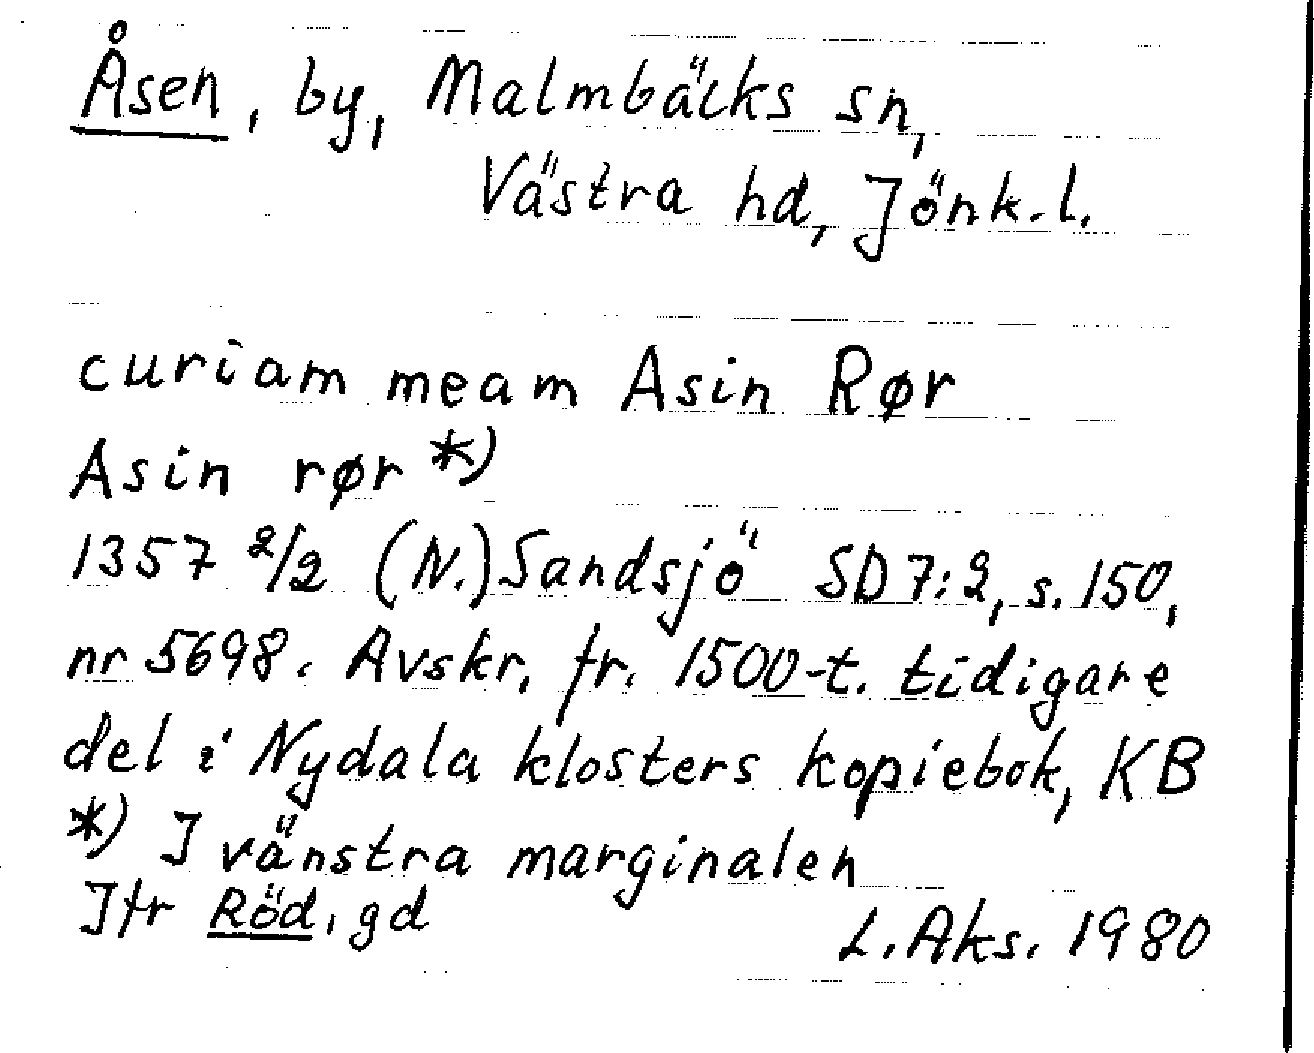 Åsen, by, Malmbäcks sn,
Västra hd, Jönk.l.
curiam meam Asin Rør
Asin rør *)
1357 2/2 (N.) Sandsjö SD 7:2, s. 150,
nr 5698. Avskr. fr. 1500-t. tidigare
del i Nydala klosters kopiebok, KB
*) I vänstra marginalen
Jfr Röd, gd
L. Aks. 1980